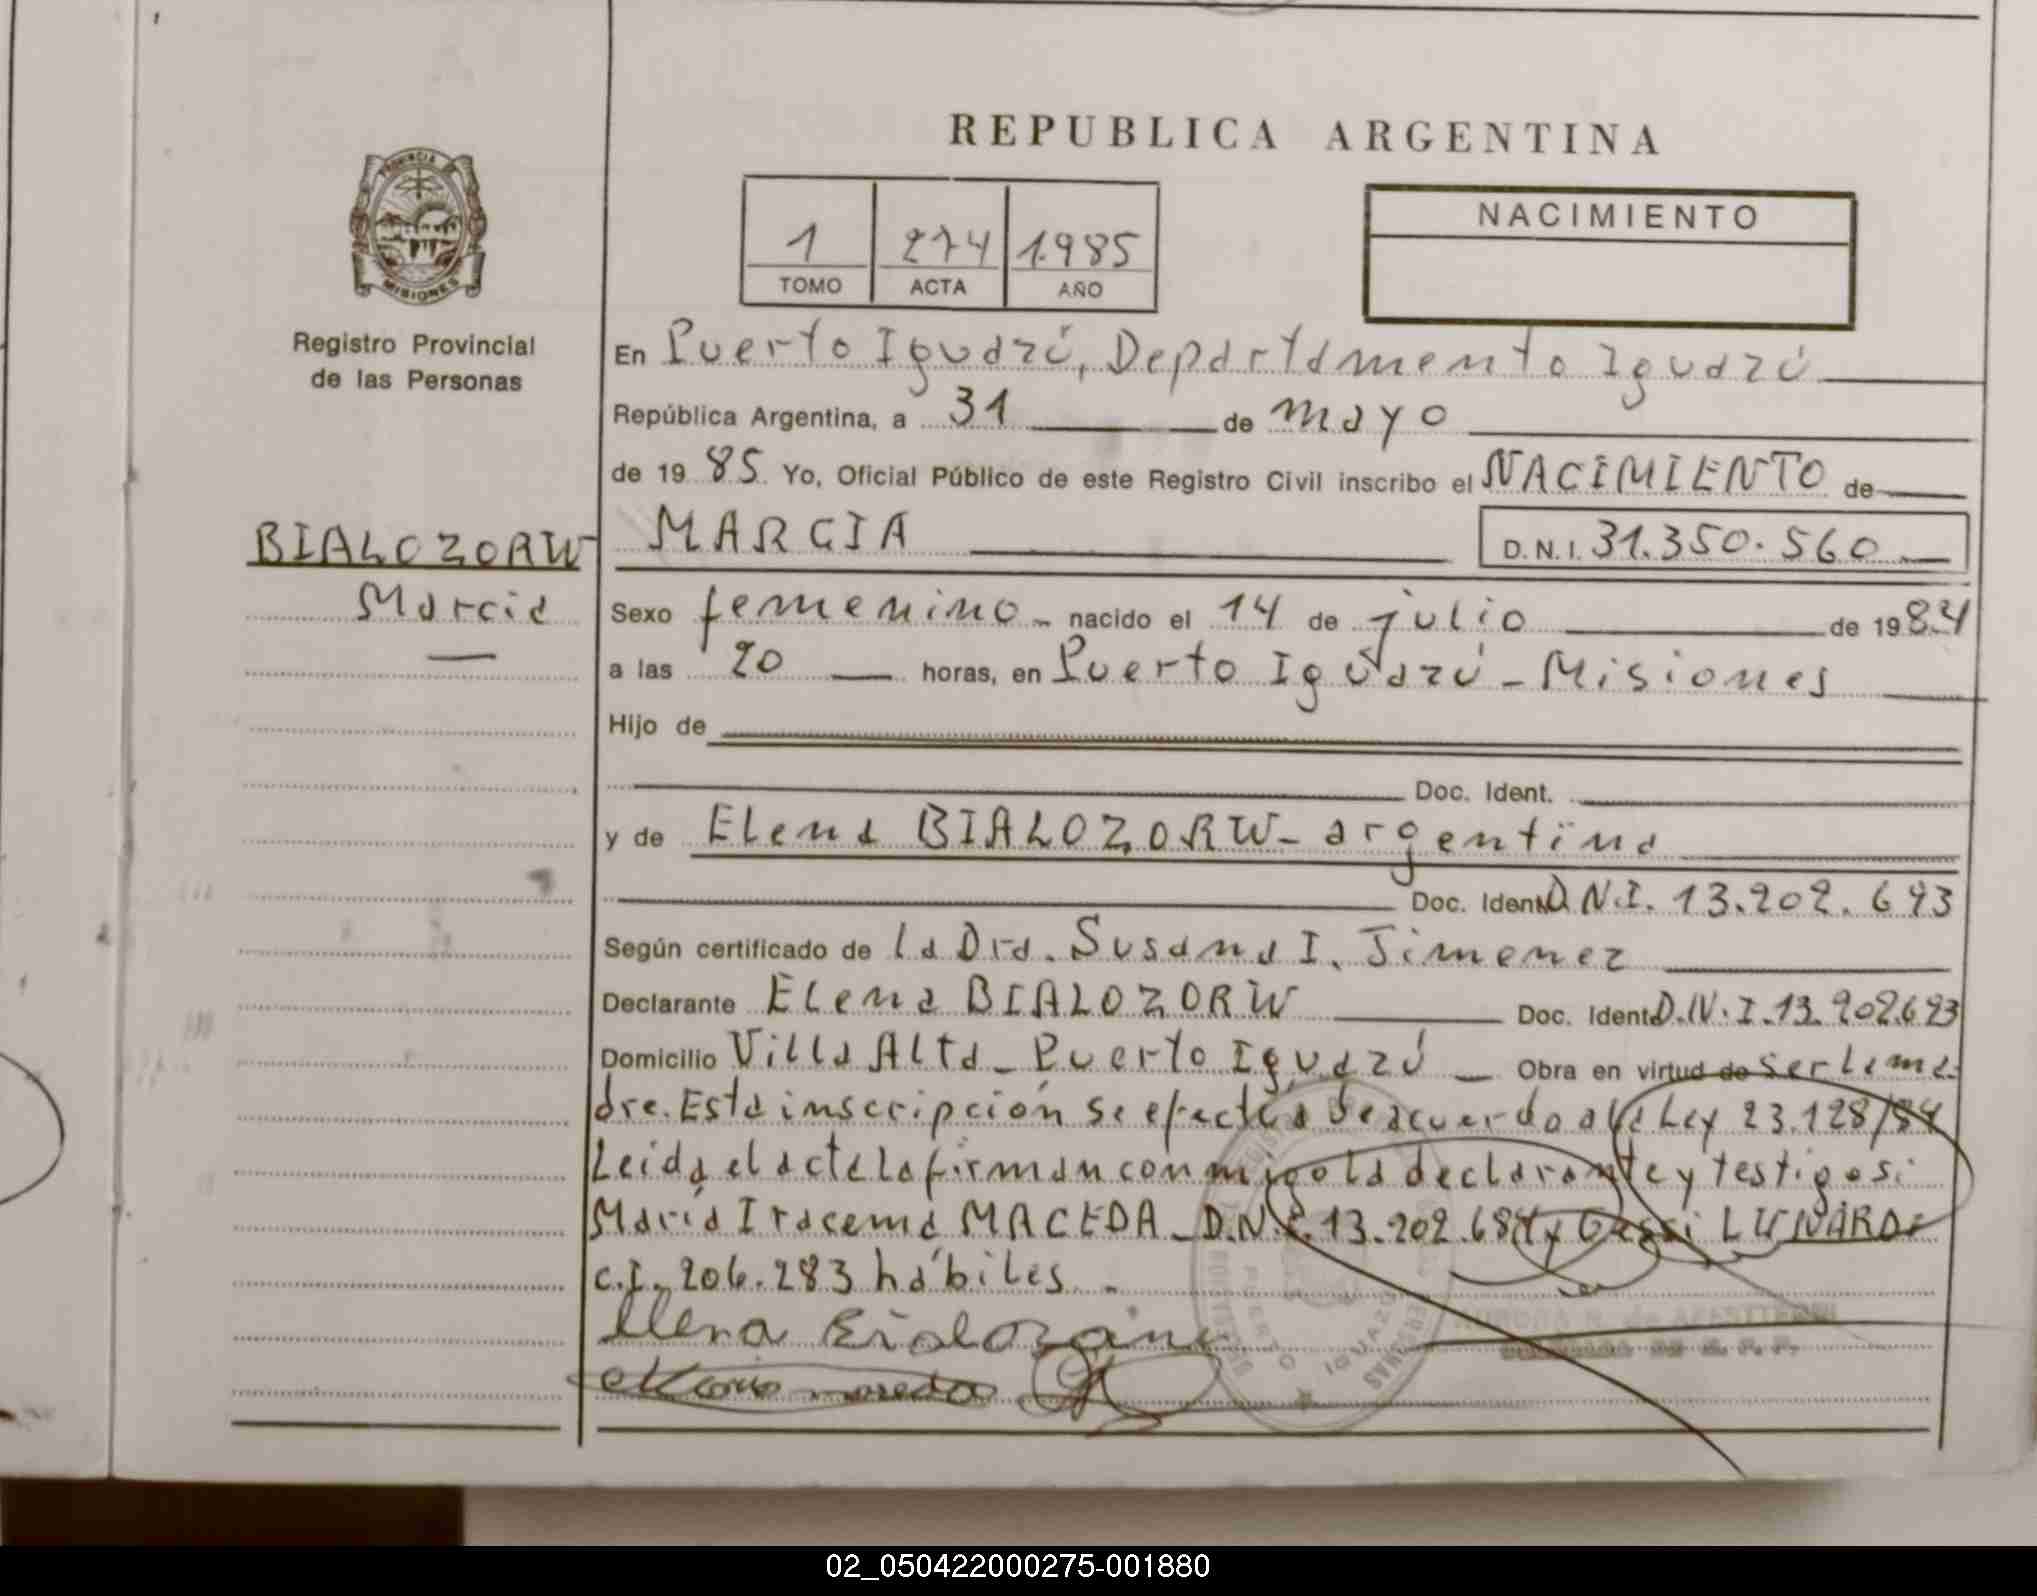 REPUBLICA ARGENTINA
PROVINCIA DE
MISIONES
Registro Provincial
de las Personas
1 274 1.985
TOMO ACTA AÑO
NACIMIENTO
En Puerto Iguazú, Departamento Iguazú
República Argentina, a 31 de mayo
de 19 85 Yo, Oficial Público de este Registro Civil inscribo el NACIMIENTO de
BIALOZORW
Marcia
MARCIA D.N.I. 31.350.560
Sexo femenino nacido el 14 de julio de 1984
a las 20 horas, en Puerto Iguazú - Misiones
Hijo de
Doc. Ident.
y de Elena BIALOZORW - argentina
Doc. Ident. D.N.I. 13.202.693
Según certificado de la Dra. Susana I. Jimenez
Declarante Elena BIALOZORW Doc. Ident. D.N.I. 13.202.693
Domicilio Villa Alta - Puerto Iguazú - Obra en virtud de ser la ma-
dre. Esta inscripción se efectúa de acuerdo a la Ley 23.128/84
Leida el acta la firman conmigo la declarante y testigos:
María Iracema MACEDA - D.N.I. 13.202.684 y LUNARDI
c.I. 206.283 hábiles.
Elena
02_050422000275-001880